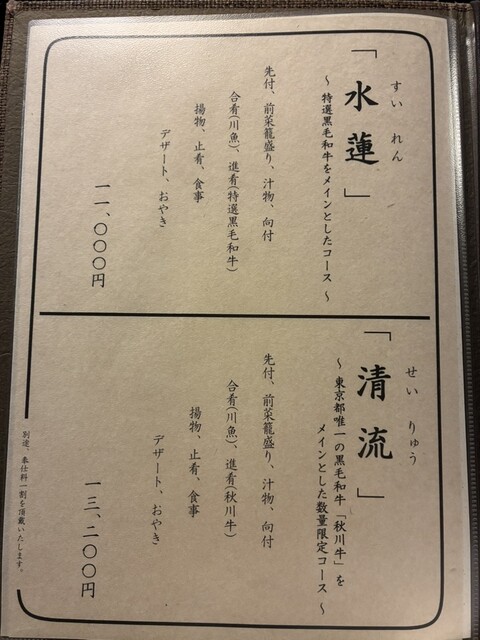 すい れん
「水蓮」
～ 特選黒毛和牛をメインとしたコース ～
先付、前菜籠盛り、汁物、向付
合肴(川魚)、進肴(特選黒毛和牛)
揚物、止肴、食事
デザート、おやき
一一、〇〇〇円
せい りゅう
「清流」
～ 東京都唯一の黒毛和牛「秋川牛」を
メインとした数量限定コース ～
先付、前菜籠盛り、汁物、向付
合肴(川魚)、進肴(秋川牛)
揚物、止肴、食事
デザート、おやき
一三、二〇〇円
別途、奉仕料一割を頂戴いたします。